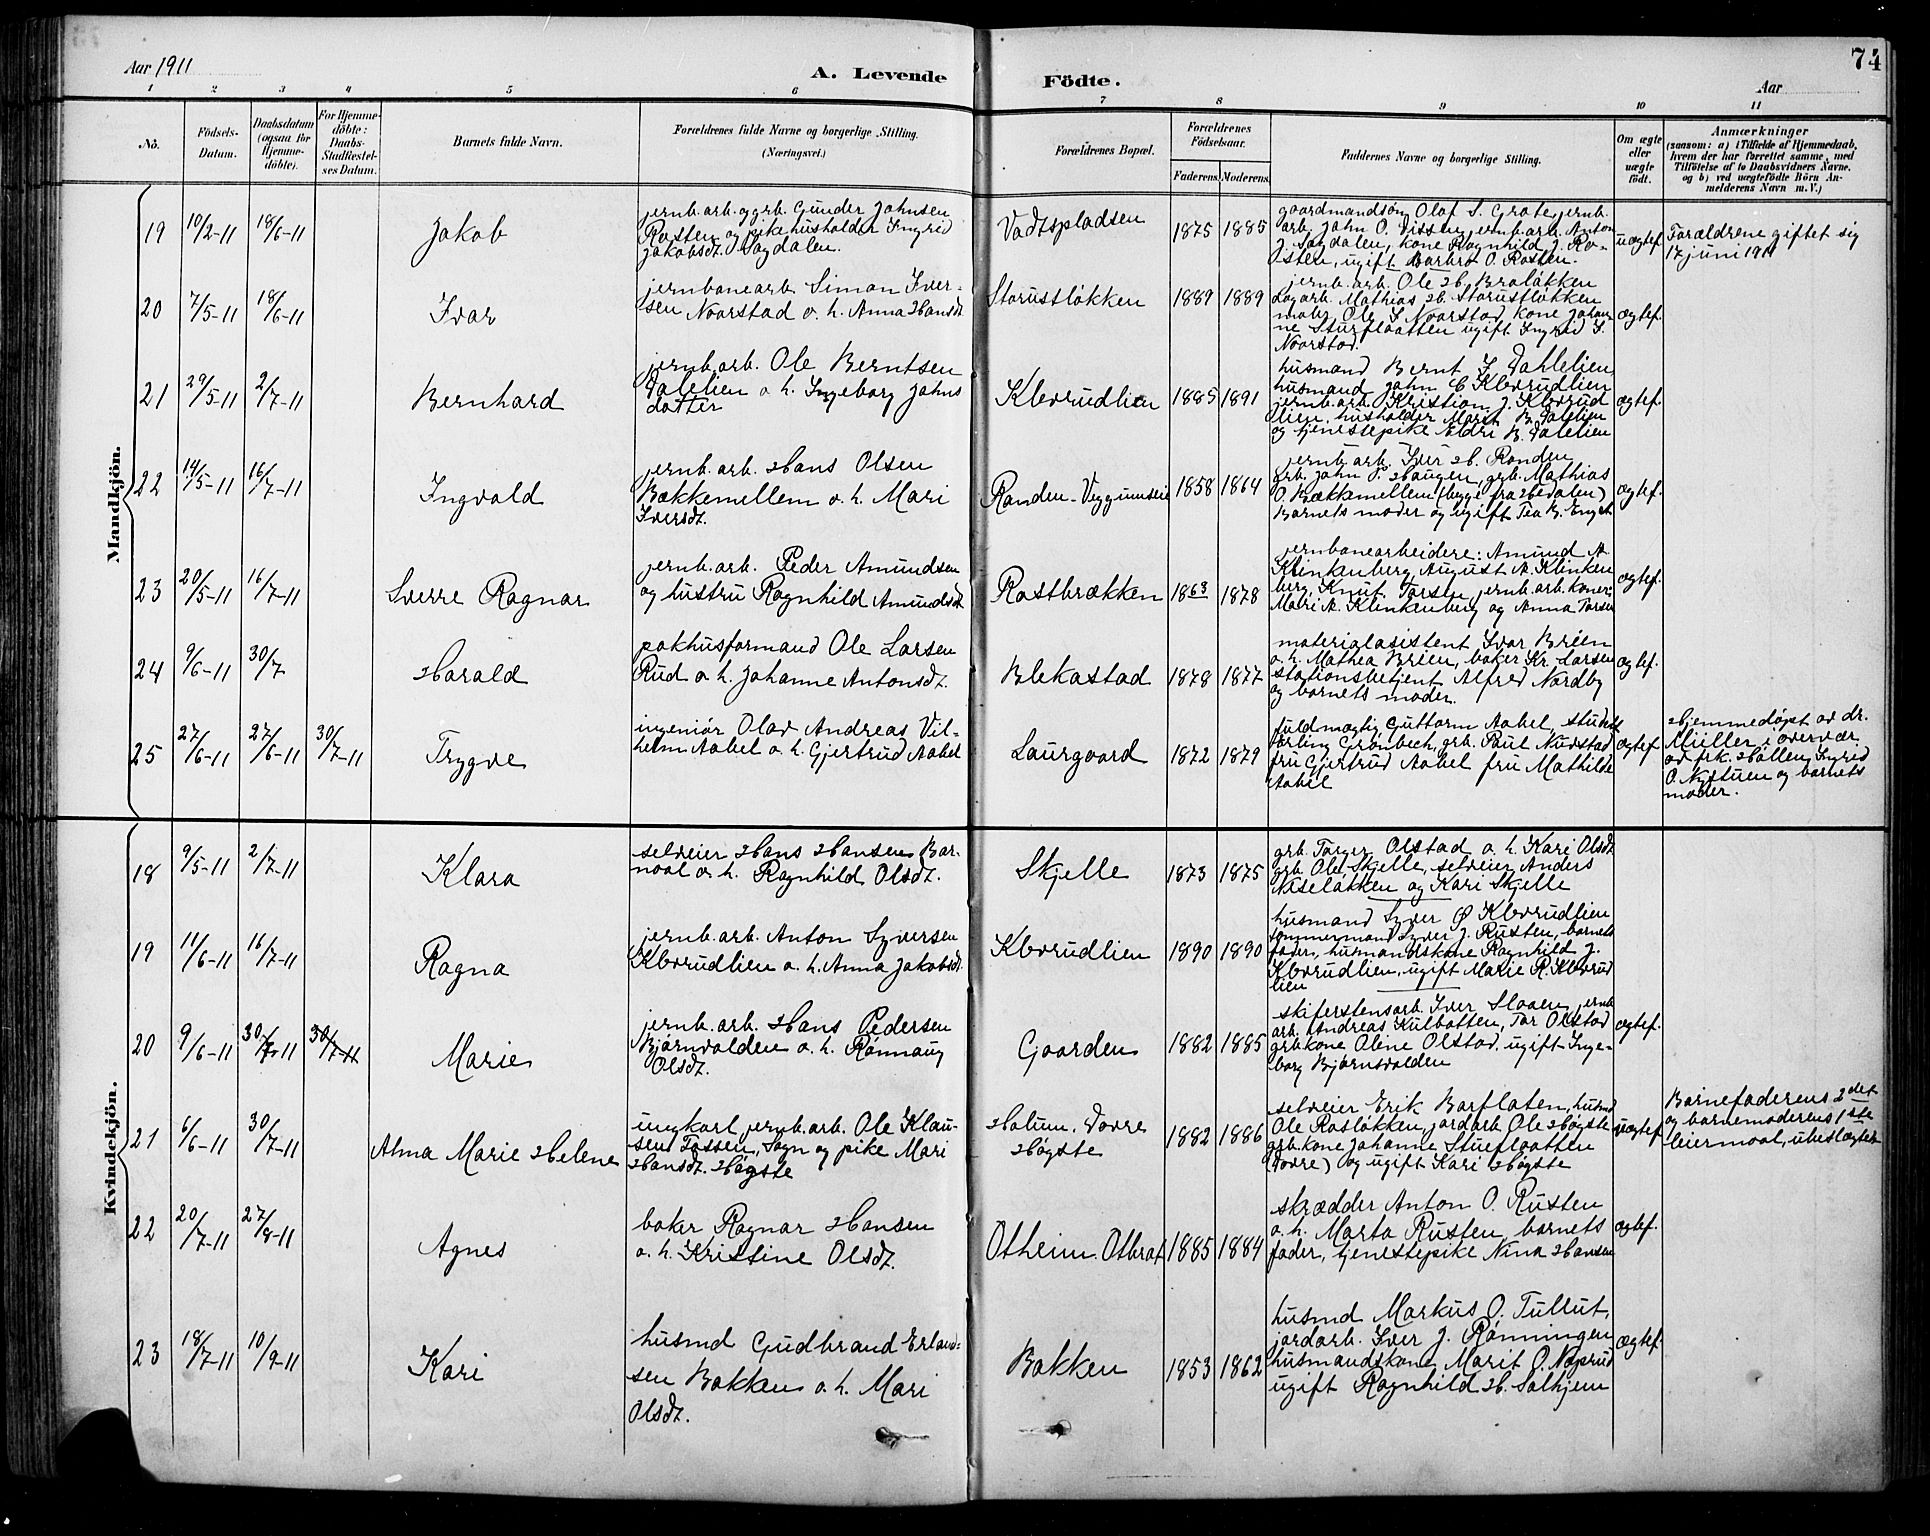 Aar 1911
A. Levende
Födte.
74
Aar
1 2 3 4 5 6 7 8 9 10 11
No.
Födsels-
Datum.
Daabsdatum
(ogsaa for
Hjemme-
döbte).
For Hjemme-
döbte:
Daabs-
Stadfestel-
ses Datum.
Barnets fulde Navn.
Forældrenes fulde Navne og borgerlige Stilling.
(Næringsvei.)
Forældrenes Bopæl.
Forældrenes
Födselsaar.
Faderens. Moderens.
Faddernes Navne og borgerlige Stilling.
Om ægte
eller
uægte
födt.
Anmærkninger
(saasom: a) i Tilfælde af Hjemmedaab,
hvem der har forrettet samme, med
Tilföielse af to Daabsvidners Navne,
og b) ved uægtefödte Börn An-
melderens Navn m. V.)
Mandkjön.
19 10/2-11 18/6-11
Jakob
jernb.arb. og grb. Gunder Johnsen
Rosten og pike husholder Ingrid
Jakobsdt. Sagdalen.
Vadtspladsen
1875 1885
gaardmandsøn Olaf S. Grote, jernb.
arb. John O. Visten, jernb.arb. Anton
J. Sagdalen, kone Ragnhild J. Ro-
sten, ugift Barbro O. Rosten.
uægtef.
Forældrene giftet sig
17 juni 1911
20 7/5-11 18/6-11
Ivar
jernbanearb. Simon Iver-
sen Noarstad o. h. Anna Hansdt.
Storustløkken
1889 1889
jernb.arb. Ole H. Braløkken
dagarb. Mathias H. Storustløkken
maler Ole S. Noarstad, kone Johan-
ne Stueflaatten ugift Ingrid S.
Noarstad.
ægtef.
21 29/5-11 2/7-11
Bernhard
jernb.arb. Ole Berntsen
Dalelien o. h. Ingeborg Johns
datter
Kleivrudlien
1885 1891
husmand Bernt I. Dahlelien
husmand John C Kleivrudlien
jernb.arb. Kristian J. Kleivrud
lien, husholder Marit B. Dalelien
og tjenestepike Eldri B. Dalelien
ægtef.
22 14/5-11 16/7-11
Ingvald
jernb.arb. Hans Olsen
Bækkemellem o. h. Mari
Iversdt.
Randen-Veggumseie
1858 1864
jernb.arb. Iver H. Randen
grb. John P. Haugen, grb. Mathias
O. Bækkemellem (begge fra Hedalen)
Barnets moder og ugift Tea B. Enget
ægtef.
23 20/5-11 16/7-11
Sverre Ragnar
jernb.arb. Peder Amundsen
og hustru Ragnhild Amundsdt.
Rostbrækken
1863 1878
jernbanearbeidere: Amund A.
Klinkenberg, August A. Klinken
berg, Knut Torsen, jernb.arb.koner:
Mari A. Klinkenberg og Anna Torsen
ægtef.
24 9/6-11 30/7
Harald
pakhusformand Ole Larsen
Rud o. h. Johanne Antonsdt.
Blekastad
1878 1877
materialasistent Ivar Brien
o. h. Mathea Brien, baker Kr. Larsen
stationsbetjent Alfred Nordby
og barnets moder.
ægtef.
25 27/6-11 27/6-11 30/7-11
Trygve
ingeniør Olav Andreas Vil-
helm Aabel o. h. Gjertrud Aabel
Laurgaard
1872 1879
fuldmægtig Guttorm Aabel, student
Erling Grønbech, grb. Paul Nurstad
fru Gjertrud Aabel fru Mathilde
Aabel
ægtef
Hjemmedøpt av dr.
Müller i overvær
av frk. Hallen, Ingrid
O. Nyttuen og barnets
moder.
Kvindekjön.
18 9/5-11 2/7-11
Klara
selveier Hans Hansen Bar-
noal o. h. Ragnhild Olsdt.
Skjelle
1873 1875
grb. Torger Olstad o. h. Kari Olsdt.
grb. Ole Skjelle, selveier Anders
Niseløkken og Kari Skjelle
19 11/6-11 16/7-11
Ragna
jernb.arb. Anton Syversen
Kleivrudlien o. h. Anna Jakobsdt.
Kleivrudlien
1890 1890
husmand Syver Ø Kleivrudlien
tømmermand Syver J. Rusten, barnets
fader, husmandskone Ragnhild J.
Kleivrudlien, ugift Marie R. Kleivrud
lien
20 9/6-11 30/7-11 30/7-11
Marie
jernb.arb. Hans Pedersen
Bjørnvolden o. h. Rønnaug
Olsdt.
Gaarden
1882 1885
skiferstensarb. Iver Sloaen, jernb.
arb. Andreas Kulbotten, Tor Olstad
grb.kone Oline Olstad, ugift Inge-
borg Bjørnsvolden
ægtef.
21 6/6-11 30/7-11
Alma Marie Helene
ungkarl jernb.arb. Ole Klau-
sen Tossen, Sogn og pike Mari
Hansdt. Høgste
Holum. Dovre
Høgste
1882 1886
selveier Erik Barflaten, husmd
Ole Rosløkken, jordarb. Ole Høgste
grb.kone Johanne Stueflaatten
(Dovre) og ugift Kari Høgste
uægtef.
Barnefaderens 2det
og barnemoderens 1ste
leiermaal, ubeslægtet
22 20/7-11 27/8-11
Agnes
baker Ragnar Hansen
o. h. Kristine Olsdt.
Otheim. Otbrat
1885 1884
skrædder Anton O. Rusten
o. h. Marta Rusten, barnets
fader, tjenestepike Nina Hansen
ægtef.
23 18/7-11 10/9-11
Kari
husmd Gudbrand Erland-
sen Bakken o. h. Mari
Olsdt.
Bakken
1853 1862
husmd Markus O. Tullut,
jordarb. Iver J. Rønningen
husmandskone Marit O. Næprud
ugift Ragnhild H. Solhjem
ægtef.